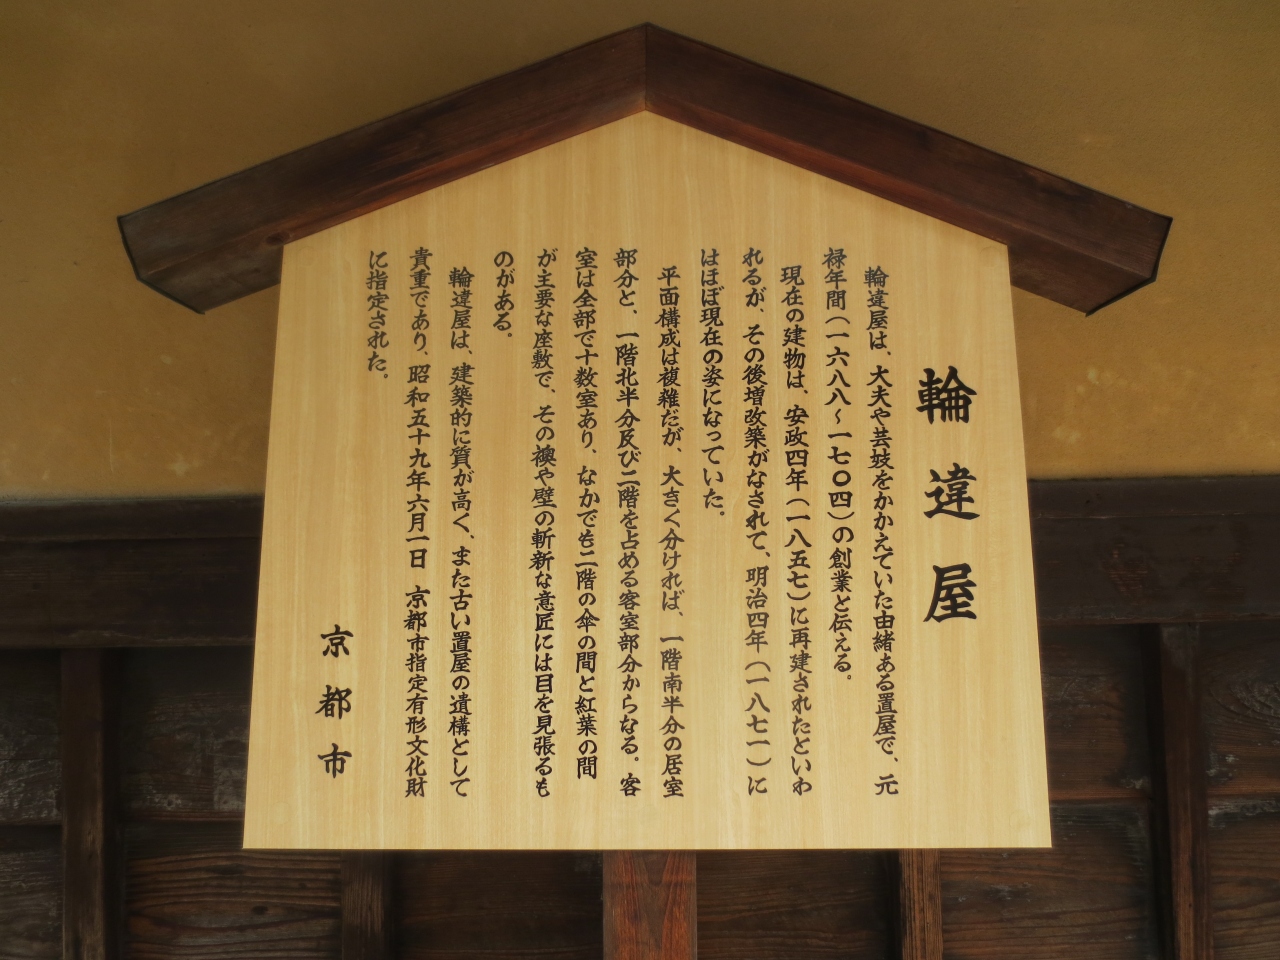 輪違屋
輪違屋は、太夫や芸妓をかかえていた由緒ある置屋で、元
禄年間（一六八八～一七〇四）の創業と伝える。
現在の建物は、安政四年（一八五七）に再建されたといわ
れるが、その後増改築がなされて、明治四年（一八七一）に
はほぼ現在の姿になっていた。
平面構成は複雑だが、大きく分ければ、一階南半分の居室
部分と、一階北半分及び二階を占める客室部分からなる。客
室は全部で十数室あり、なかでも二階の傘の間と紅葉の間
が主要な座敷で、その襖や壁の斬新な意匠には目を見張るも
のがある。
輪違屋は、建築的に質が高く、また古い置屋の遺構として
貴重であり、昭和五十九年六月一日　京都市指定有形文化財
に指定された。
京都市